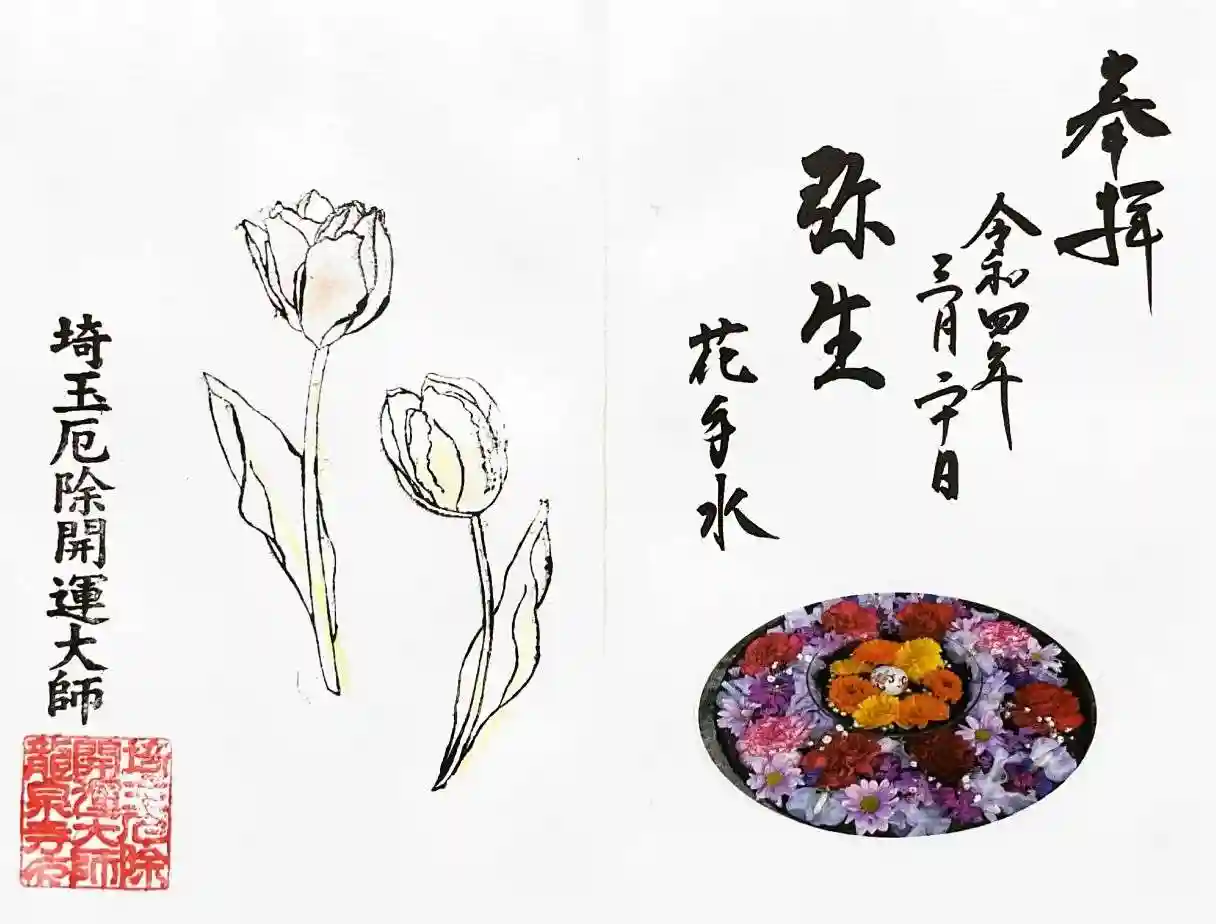 奉拝
令和四年
三月二十日
弥生
花手水
埼玉厄除開運大師
埼玉厄除
開運大師
龍泉寺印